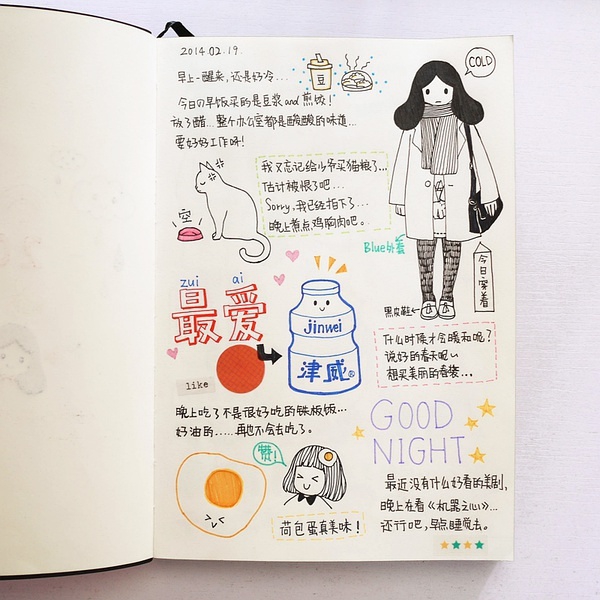 2014.02.19.
早上一醒来,还是好冷...
豆
COLD
今日の早饭买的是豆浆and煎饺!
放了醋...整个办公室都是酸酸的味道...
要好好工作呀!
我又忘记给少爷买猫粮了...
估计被恨了吧...
Sorry,我已经拍下了...
晚上煮点鸡胸肉吧。
空
Blue外套
今日穿着
黑皮鞋
zui ai
最爱
jinwei
津威®
like
什么时候才会暖和呢?
说好的春天呢~
想买美丽的春装...
晚上吃了不是很好吃的铁板饭...
好油的.....再也不会去吃了。
赞!
荷包蛋真美味!
GOOD
NIGHT
最近没有什么好看的美剧,
晚上在看《机器之心》...
还行吧,早点睡觉去。